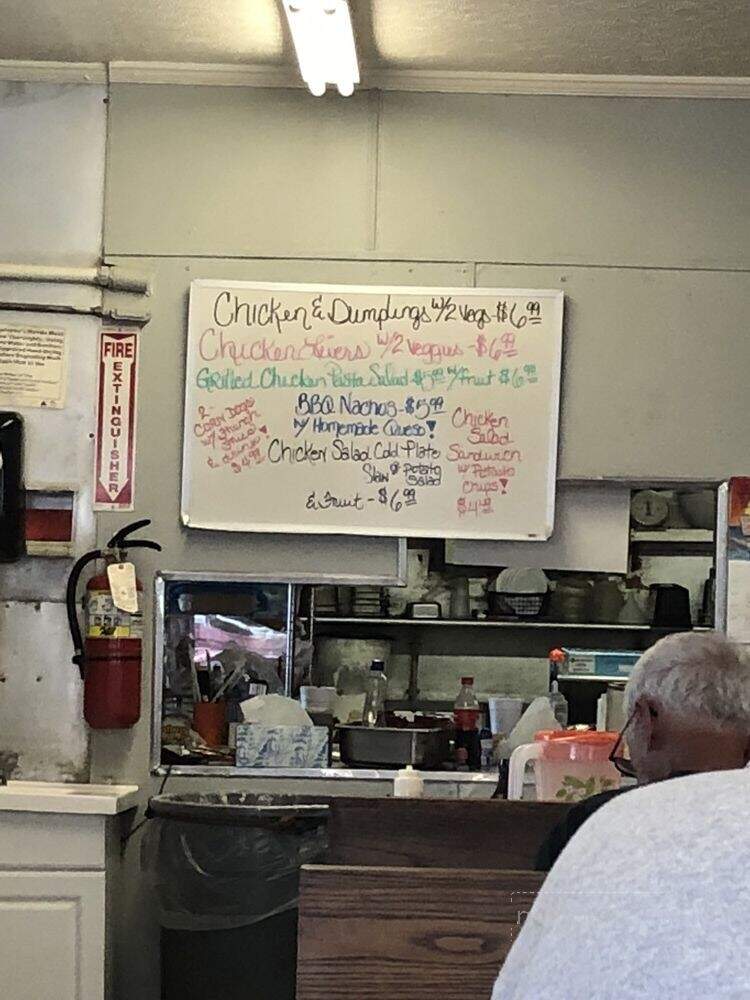 Chicken & Dumplings w/2 vegs-$6.99
Chicken Livers w/2 veggies -$6.99
Grilled Chicken Pasta Salad $5.99 w/fruit $6.99
BBQ Nachos-$5.99
w/ Homemade Queso!
2-
Corn Dogs
w/ French
Fries
& drink
$4.99
Chicken Salad Cold Plate
Slaw & Potato
Salad
& Fruit - $6.99
Chicken
Salad
Sandwich
w Potato
Chips!
FIRE
EXTINGUISHER